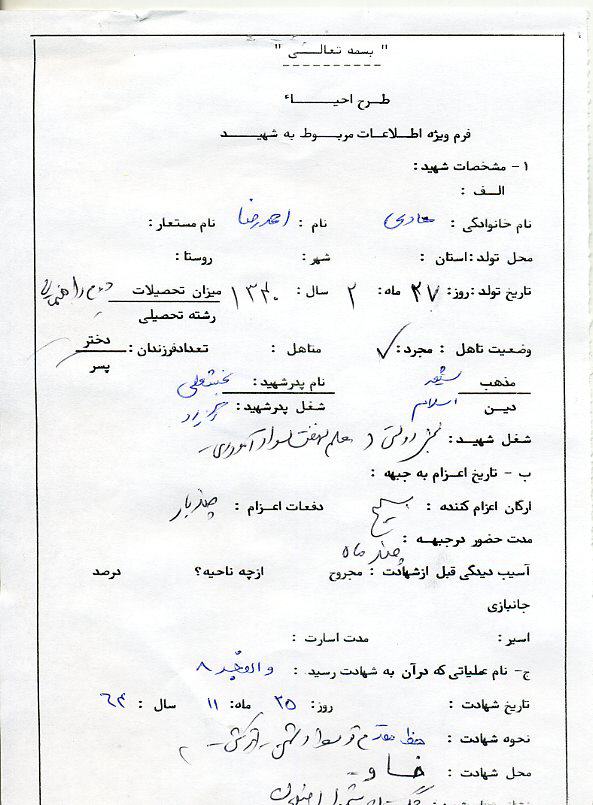 " بسمه تعالی "
طرح احیاء
فرم ویژه اطلاعات مربوط به شهید
۱- مشخصات شهید :
الف :
نام خانوادگی : هادی نام : احمدرضا نام مستعار :
محل تولد : استان : شهر : روستا :
تاریخ تولد : روز : ۲۷ ماه : ۲ سال : ۱۳۴۰ میزان تحصیلات دوم راهنمایی
رشته تحصیلی
وضعیت تاهل : مجرد : ✓ متاهل : تعدادفرزندان : دختر
پسر
مذهب شیعه نام پدرشهید :
دین اسلام شغل پدرشهید :
شغل شهید : دولتی معلم نهضت سواد آموزی -
ب - تاریخ اعزام به جبهه :
ارگان اعزام کننده : بسیج دفعات اعزام : چند بار
مدت حضور درجبهه : چند ماه
آسیب دیدگی قبل ازشهادت : مجروح ازچه ناحیه؟ درصد
جانبازی
اسیر : مدت اسارت :
ج- نام عملیاتی که درآن به شهادت رسید : والفجر ۸
تاریخ شهادت : روز : ۲۵ ماه : ۱۱ سال : ۶۴
نحوه شهادت : خط مقدم
محل شهادت : فاو -